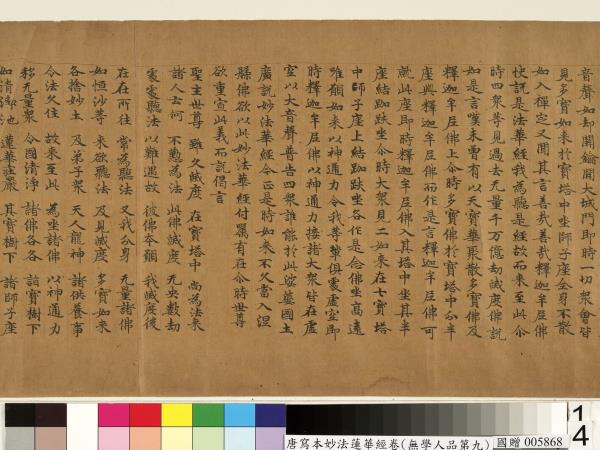 音聲如却關鑰開大城門即時一切眾會皆
見多寶如來於寶塔中坐師子座全身不散
如入禪定又聞其言善哉善哉釋迦牟尼佛
快說是法華經我為聽是經故而來至此尒
時四眾等見過去无量千万億劫滅度佛說
如是言嘆未曾有以天寶華聚散多寶佛及
釋迦牟尼佛上尒時多寶佛於寶塔中分半
座與釋迦牟尼佛而作是言釋迦牟尼佛可
就此座即時釋迦牟尼佛入其塔中坐其半
座結跏趺坐尒時大眾見二如來在七寶塔
中師子座上結跏趺坐各作是念佛坐高遠
唯願如來以神通力令我等輩俱處虛空即
時釋迦牟尼佛以神通力接諸大眾皆在虛
空以大音聲普告四眾誰能於此娑婆國土
廣說妙法華經今正是時如來不久當入涅
槃佛欲以此妙法華經付囑有在尒時世尊
欲重宣此義而說偈言
聖主世尊 雖久滅度 在寶塔中 尚為法來
諸人云何 不懃為法 此佛滅度 无央數劫
處處聽法 以難遇故 彼佛本願 我滅度後
在在所往 常為聽法 又我分身 无量諸佛
如恒沙等 來欲聽法 及見滅度 多寶如來
各捨妙土 及弟子眾 天人龍神 諸供養事
令法久住 故來至此 為坐諸佛 以神通力
移无量眾 令國清淨 諸佛各各 詣寶樹下
如清淨池 蓮華莊嚴 其寶樹下 諸師子座
唐寫本妙法蓮華經卷(無學人品第九)
國贈 005868
14